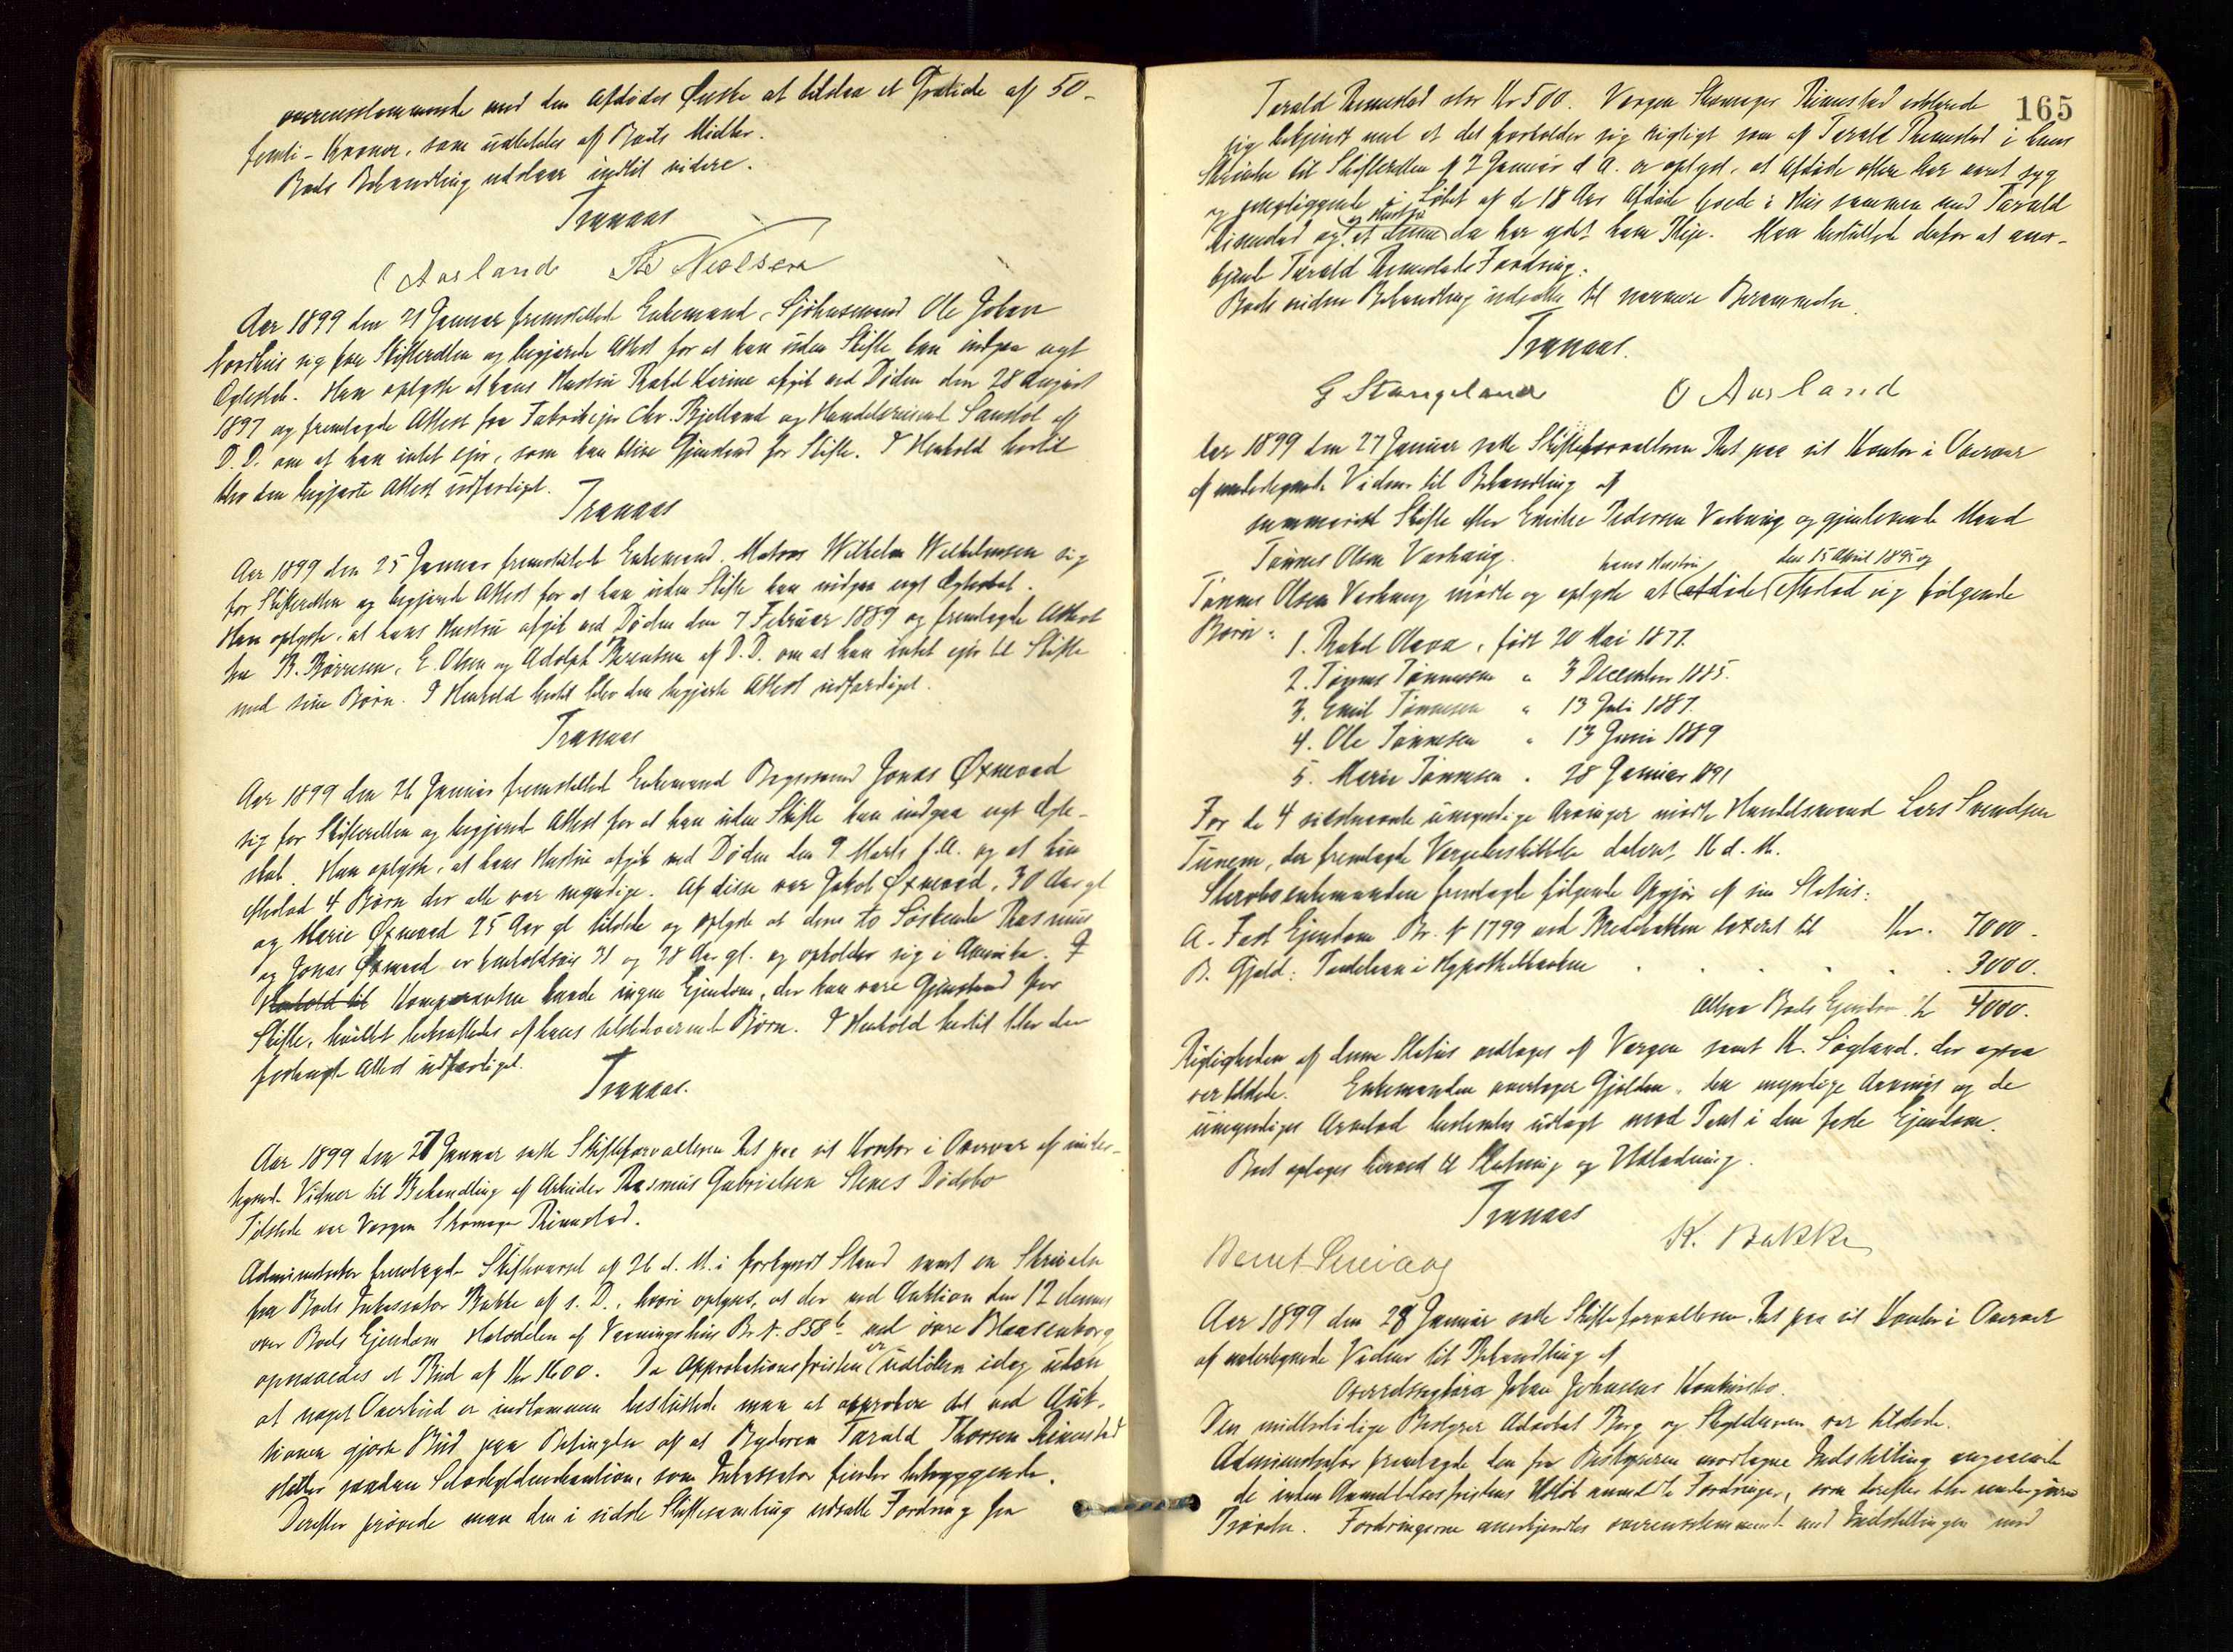 overensstemmende med den Afdødes Ønske at tilstaa et Gratiale af 50-
femti - Kroner, som udbetales af Boets Midler.
Boets Behandling udstaar indtil videre.
Tranaas
O Aarland Th Nielsen
Aar 1899 den 21 Januar fremstillede Enkemand, Sjøhusmand Ole Johan
Nordhus sig for Skifteretten og begjærede Attest for at han uden Skifte kan indgaa nyt
Ægteskab. Han oplyste at hans Hustru Rakel Karine afgik ved Døden den 28 August
1897 og fremlagde Attest fra Fabrikejer Chr. Bjelland og Handelsreisende af
D. D. om at han intet ejer, som kan blive Gjenstand for Skifte. I Henhold hertil
blev den begjærte Attest udfærdiget.
Tranaas
Aar 1899 den 25 Januar fremstillede Enkemand, Matros Wilhelm Wilhelmsen sig
for Skifteretten og begjærede Attest for at han uden Skifte kan indgaa nyt Ægteskab.
Han oplyste, at hans Hustru afgik ved Døden den 7 Februar 1889 og fremlagde Attest
fra B. Børresen, E. Olsen og Adolph Berentsen af D. D. om at han intet ejer til Skifte
med sine Børn. I Henhold hertil blev den begjærte Attest udfærdiget.
Tranaas
Aar 1899 den 26 Januar fremstillede Enkemand Bøgersvend Jonas Øxnevad
sig for Skifteretten og begjærede Attest for at han uden Skifte kan indgaa nyt Ægte-
skab. Han oplyste, at hans Hustru afgik ved Døden den 9 Marts f. A. og at hun
efterlod 4 Børn der alle var myndige. Af disse var Jakob Øxnevad, 30 Aar gl
og Marie Øxnevad 25 Aar gl tilstede og oplyste at deres to Søskende Rasmus
og Jonas Øxnevad er henholdsvis 31 og 28 Aar gl. og opholder sig i Amerika. I
Henhold til Komparenten havde ingen Ejendom, der kan være Gjenstand for
Skifte, hvilket bekræftedes af hans tilstedeværende Børn. I Henhold hertil blev den
forlangte Attest udfærdiget.
Tranaas.
Aar 1899 den 27 Januar satte Skifteforvalteren Ret paa sit Kontor i Overvær af under-
tegnede Vidner til Behandling af Arbeider Rasmus Gabrielsen Stenes Dødsbo
Tilstede var Vergen Skomager Rimestad.
Administrator fremlagde Skiftevarsel af 26 d. M. i forkyndt Stand samt en Skrivelse
fra Boets Inkassator Bakke af s. D., hvori oplyses, at der ved Auktion den 12 dennes
over Boets Ejendom Halvdelen af Vaaningshus Br. N. 858 b ved øvre Blaasenborg
opnaaedes et Bud af Kr 1600. Da Approbationsfristen er udløben idag uden
at noget Overbud er indkommen besluttede man at approbere det ved Auk-
tionen gjorte Bud paa Betingelse af at Byderen Tarald Thorsen Rimestad
stiller saadan Selvskyldnerkaution, som Inkassator finder betryggende.
Derefter prøvede man den i sidste Skiftesamling udsatte Fordring fra
165
Tarald Rimestad stor Kr 500. Vergen Skomager Rimestad erklærede
sig bekjendt med at det forholder sig rigtigt som af Tarald Rimestad i hans
Skrivelse til Skifteretten af 2 Januar d. A. er oplyst, at Afdøde oftere har været syg
og sengeliggende i Løbet af de 18 Aar Afdøde boede i Hus sammen med Tarald
Rimestad og Hustru og at denne da har ydet ham Pleje. Man besluttede derfor at aner-
kjende Tarald Rimestads Fordring.
Boets videre Behandling udsattes til nærmere Berammelse.
Tranaas.
G Stangeland O Aarland
Aar 1899 den 27 Januar satte Skifteforvalteren Ret paa sit Kontor i Overvær
af undertegnede Vidner til Behandling af
summarisk Skifte efter Emilie Pedersen Varhaug og gjenlevende Mand
Tønnes Olsen Varhaug.
hans Hustru den 15 April 1895 og
Tønnes Olsen Varhaug mødte og oplyste at afdøde efterlod sig følgende
Børn:
1. Rakel Olava, født 20 Mai 1877.
2. Tønnes Tønnessen " 3 December 1885.
3. Emil Tønnesen " 13 Juli 1887.
4. Ole Tønnesen " 13 Juni 1889
5. Marie Tønnesen " 28 Januar 1891
For de 4 sidstnævnte umyndige Arvinger mødte Handelsmand Lars Svendsen
Tunem, der fremlagde Vergebeskikkelse dateret 16 d. M.
Stervboenkemanden fremlagde følgende Opgjør af sin Status:
A. Fast Ejendom Br. N 1799 ved Bredebakken taxeret til Kr. 7000.
B. Gjæld: Pantelaan i Hypothekbanken . . . . 3000.
Altsaa Boets Ejendom Kr 4000.
Rigtigheden af denne Status vedtoges af Vergen samt K. Søyland, der ogsaa
var tilstede. Enkemanden overtager Gjælden, den myndige Arvings og de
umyndiges Arvelod bestemtes udlagt mod Pant i den faste Ejendom.
Boet optages herved til Slutning og Udlodning.
Tranaas
Bernt K. Bakke
Aar 1899 den 28 Januar satte Skifteforvalteren Ret paa sit Kontor i Overvær
af undertegnede Vidner til Behandling af
Overretssagfører Johan Johnssons Konkursbo.
Den midlertidige Bestyrer Advokat Berg og Skyldneren var tilstede.
Administrator fremlagde den fra Bestyreren modtagne Indstilling angaaende
de inden Anmeldelsesfristens Udløb anmeldte Fordringer, som derefter blev undergivne
Prøvelse. Fordringerne anerkjendtes overensstemmende med Indstillingen med